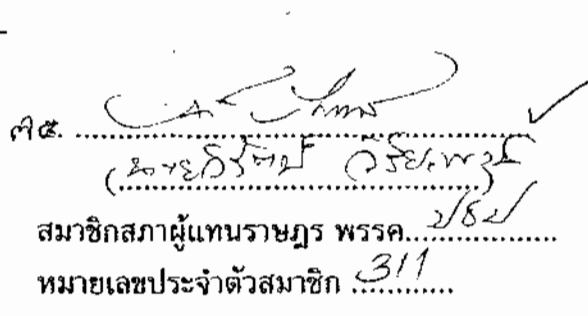 ๓๕.
(นายวิรัตน์ วิริยะพงษ์)
สมาชิกสภาผู้แทนราษฎร พรรค ปชป
หมายเลขประจำตัวสมาชิก 311